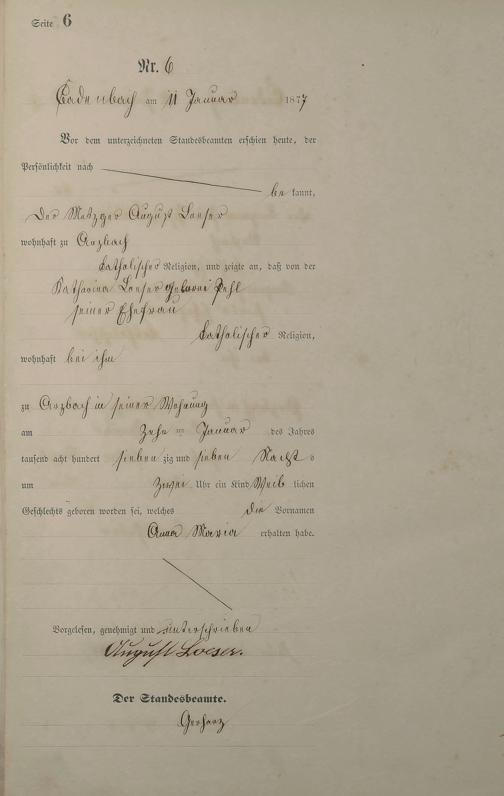 Seite 6
Nr. 6
Cadenbach am 11 Januar 1877
Vor dem unterzeichneten Standesbeamten erschien heute, der
Persönlichkeit nach
be kannt,
Der Metzger August Loeser
wohnhaft zu Arzbach
katholischer Religion, und zeigte an, daß von der
Katharina Loeser geborene Pehl
seiner Ehefrau
katholischer Religion,
wohnhaft bei ihm
zu Arzbach in seiner Wohnung
am Zehn ten Januar des Jahres
tausend acht hundert sieben zig und sieben Nachts
um Zwei Uhr ein Kind Weib lichen
Geschlechts geboren worden sei, welches die Vornamen
Anna Maria erhalten habe.
Vorgelesen, genehmigt und unterschrieben
August Loeser.
Der Standesbeamte.
Gerharz